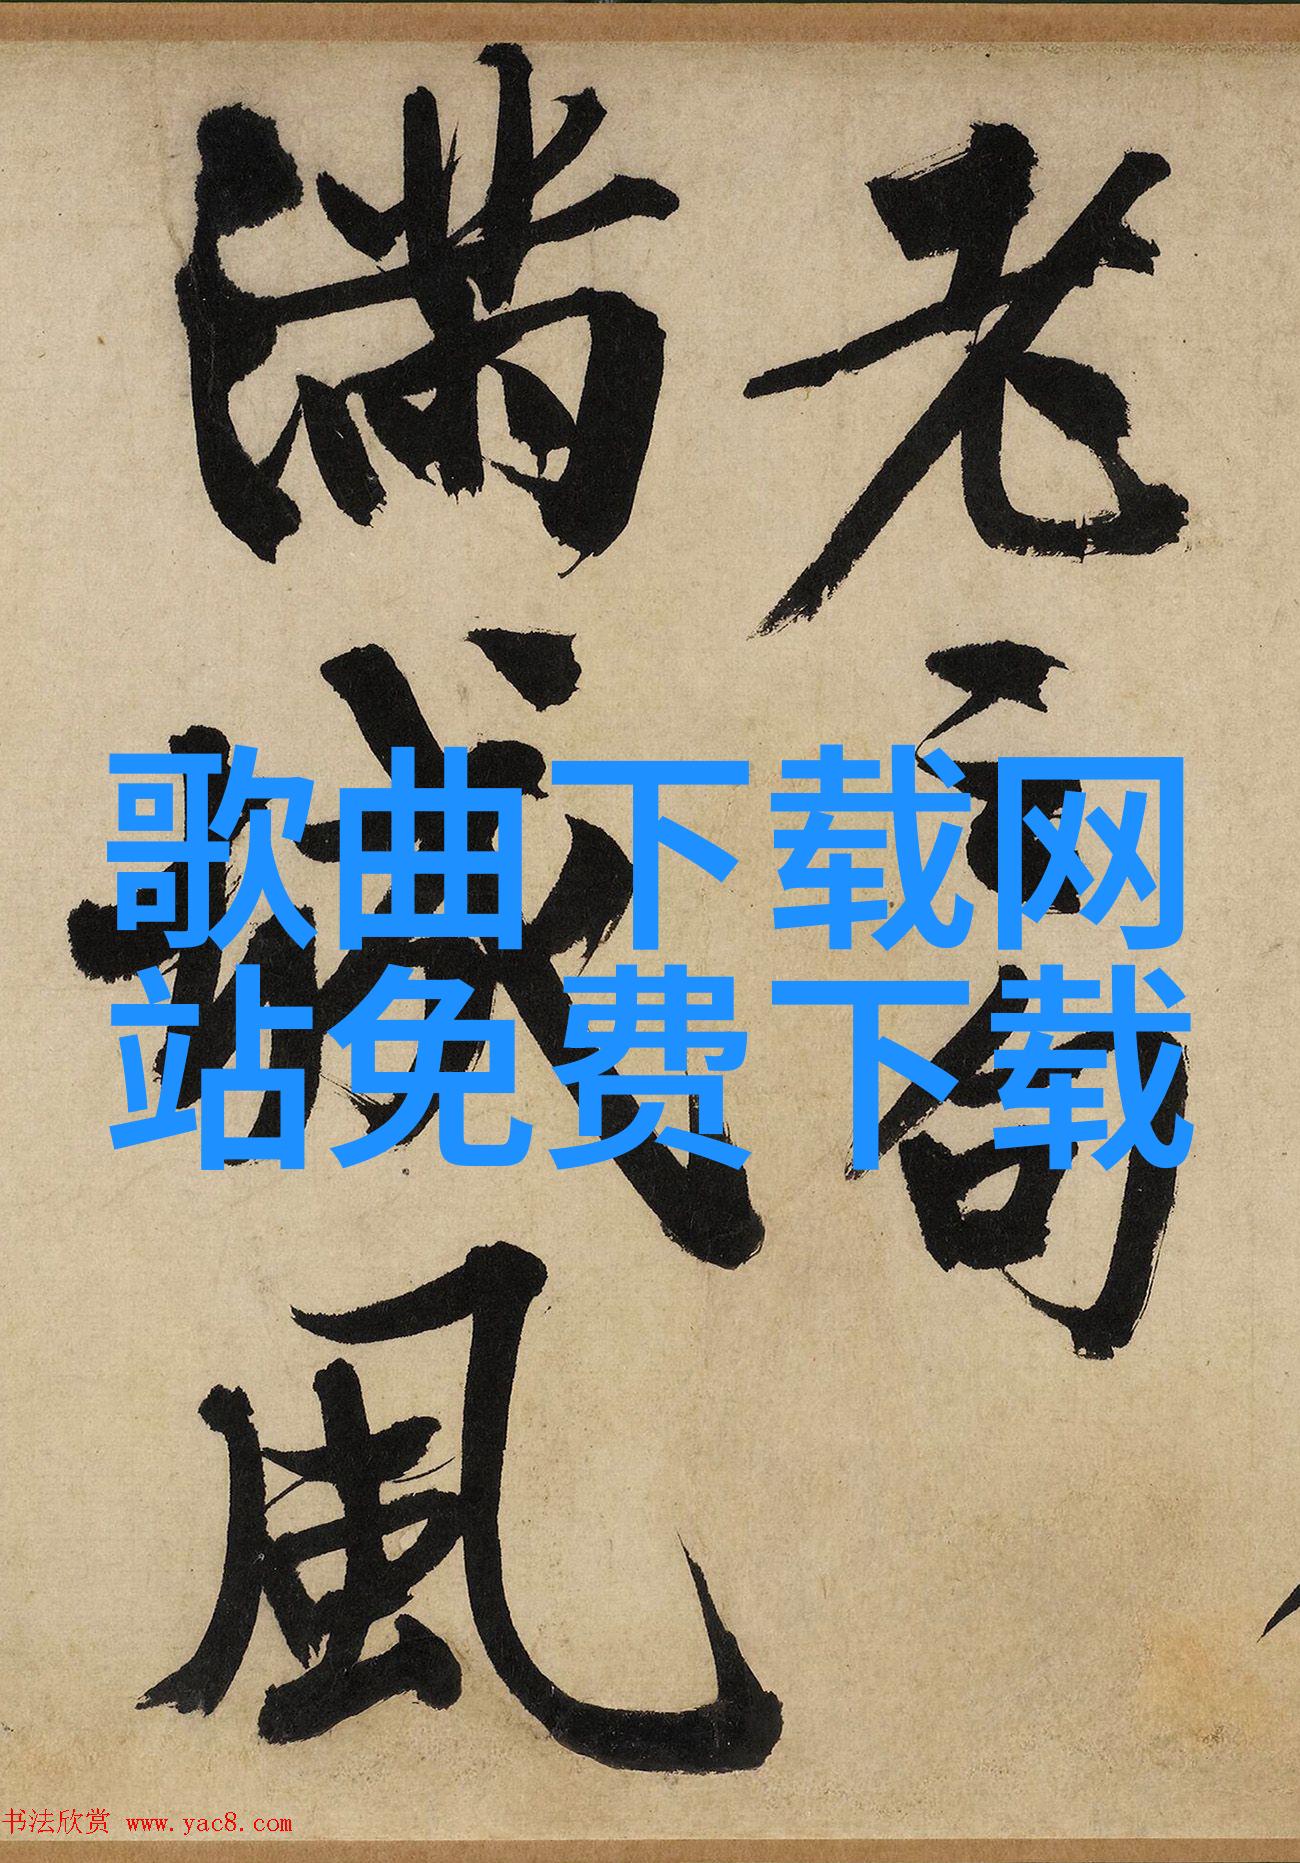 老句
滿城風
歌曲下载网
站免费下载
书法欣赏 www.yac8.com